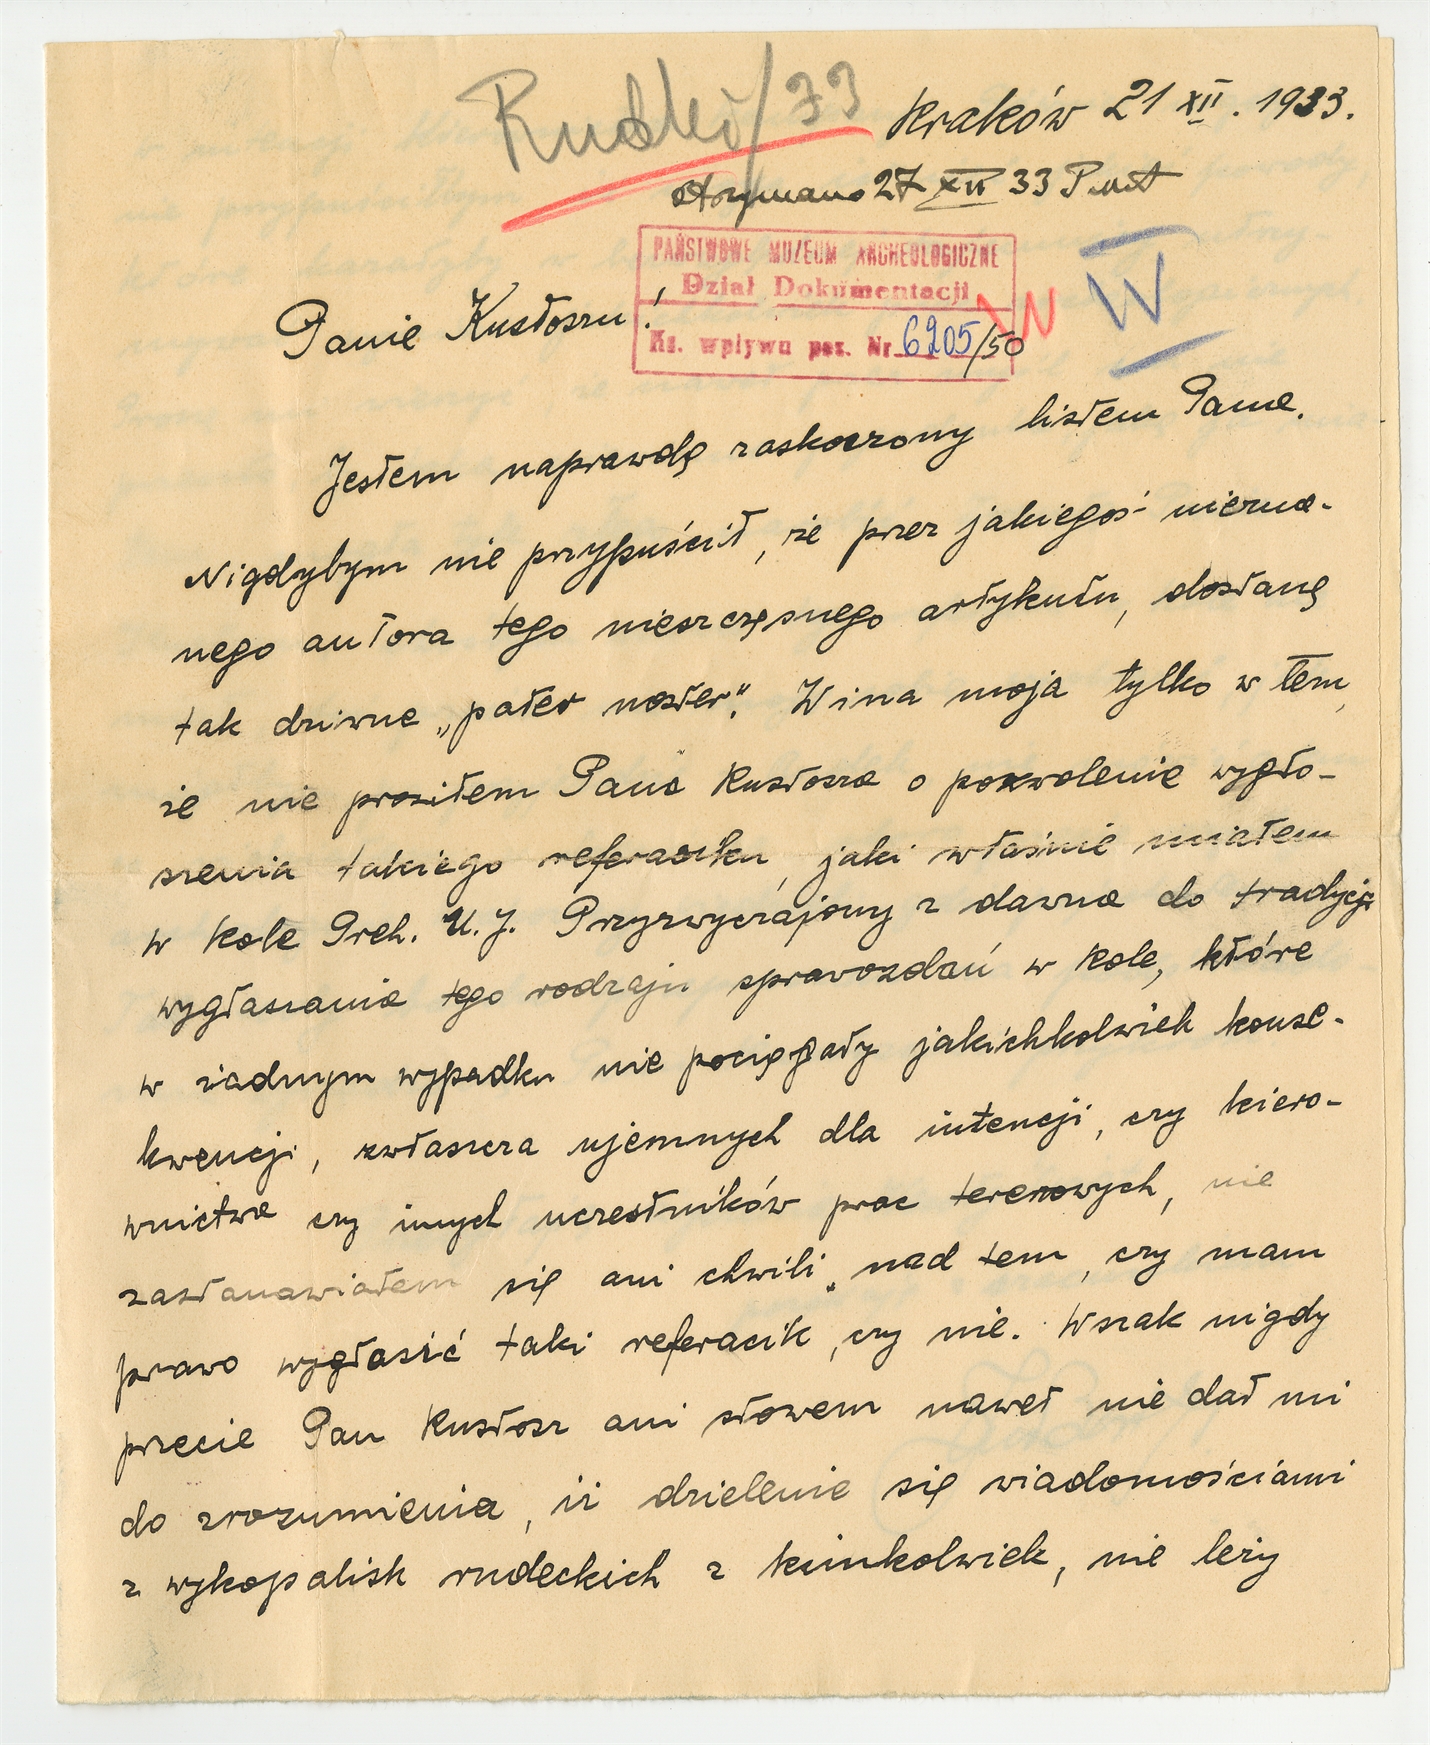 Rudki/33
Kraków 21 XII. 1933.
otrzymano 27 XII 33
PAŃSTWOWE MUZEUM ARCHEOLOGICZNE
Dział Dokumentacji
Ks. wpływu poz. Nr 6205/50
W W
Panie Kustoszu!
Jestem naprawdę zaskoczony listem Pana.
Nigdybym nie przypuścił, że przez jakiegoś niezna-
nego autora tego nieszczęsnego artykułu, dostanę
tak dziwne „pater noster". Wina moja tylko w tem,
że nie prosiłem Pana Kustosza o pozwolenie wygło-
szenia takiego referaciku, jaki właśnie miałem
w Kole Preh. U. J. Przyzwyczajony z dawna do tradycji
wygłaszania tego rodzaju sprawozdań w Kole, które
w żadnym wypadku nie pociągały jakichkolwiek konse-
kwencji, zwłaszcza ujemnych dla intencji, czy kiero-
wnictwa czy innych uczestników prac terenowych, nie
zastanawiałem się ani chwili nad tem, czy mam
prawo wygłosić taki referacik, czy nie. Wszak nigdy
przecie Pan Kustosz ani słowem nawet nie dał mi
do zrozumienia, iż dzielenie się wiadomościami
z wykopalisk rudeckich z kimkolwiek, nie leży